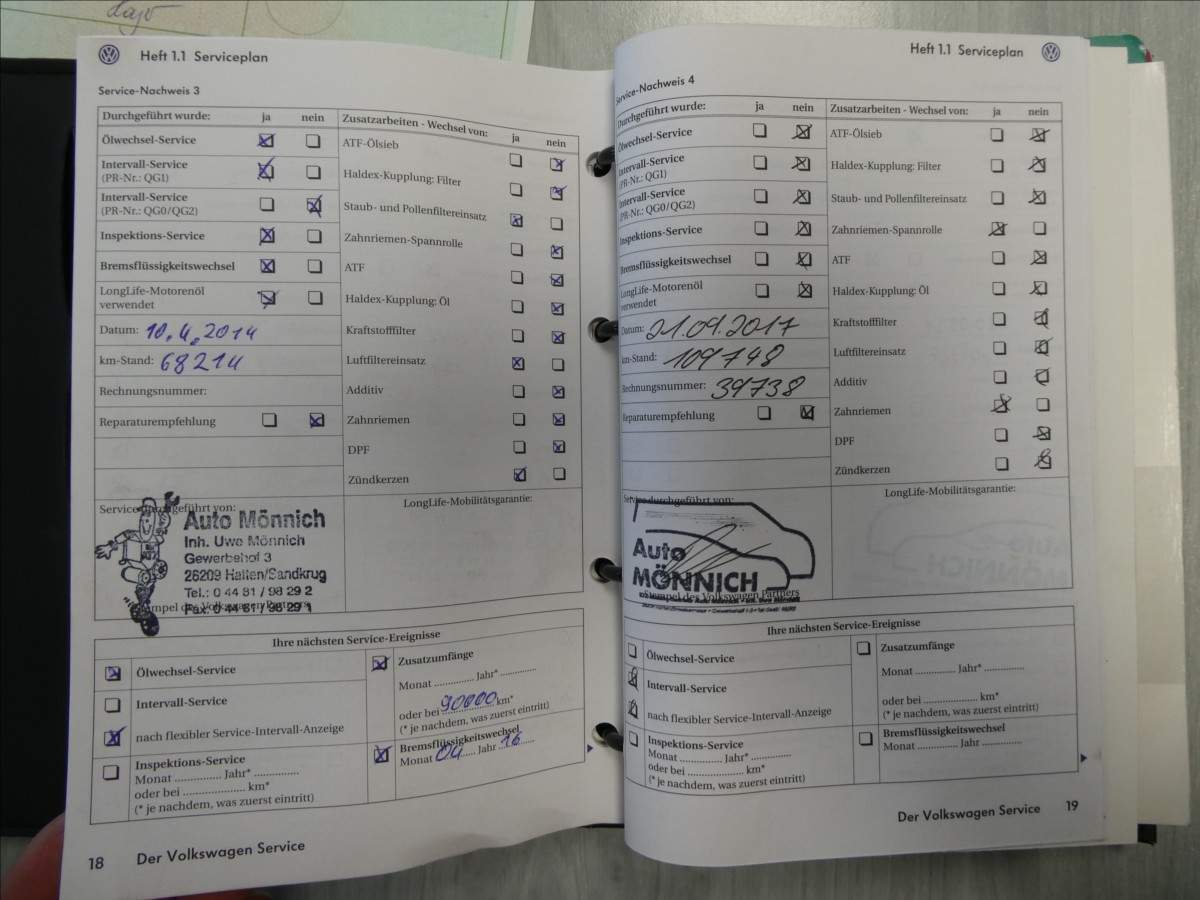 Lajo
Heft 1.1 Serviceplan
Service-Nachweis 3
Durchgeführt wurde: ja nein
Ölwechsel-Service
Intervall-Service
(PR-Nr.: QG1)
Intervall-Service
(PR-Nr.: QG0/QG2)
Inspektions-Service
Bremsflüssigkeitswechsel
LongLife-Motorenöl
verwendet
Datum: 10.4.2014
km-Stand: 68214
Rechnungsnummer:
Reparaturempfehlung
Zusatzarbeiten - Wechsel von: ja nein
ATF-Ölsieb
Haldex-Kupplung: Filter
Staub- und Pollenfiltereinsatz
Zahnriemen-Spannrolle
ATF
Haldex-Kupplung: Öl
Kraftstofffilter
Luftfiltereinsatz
Additiv
Zahnriemen
DPF
Zündkerzen
Service durchgeführt von:
Auto Mönnich
Inh. Uwe Mönnich
Gewerbehof 3
26209 Hatten/Sandkrug
Tel.: 0 44 81 / 98 29 2
Stempel des Volkswagen Partners
Fax: 0 44 81 / 98 29 1
LongLife-Mobilitätsgarantie:
Ihre nächsten Service-Ereignisse
Ölwechsel-Service
Intervall-Service
nach flexibler Service-Intervall-Anzeige
Inspektions-Service
Monat .............. Jahr* ..............
oder bei .................... km*
(* je nachdem, was zuerst eintritt)
Zusatzumfänge
Monat .............. Jahr* ..............
oder bei 90000 km*
(* je nachdem, was zuerst eintritt)
Bremsflüssigkeitswechsel
Monat 04 Jahr 16
18 Der Volkswagen Service
Heft 1.1 Serviceplan
Service-Nachweis 4
Durchgeführt wurde: ja nein
Ölwechsel-Service
Intervall-Service
(PR-Nr.: QG1)
Intervall-Service
(PR-Nr.: QG0/QG2)
Inspektions-Service
Bremsflüssigkeitswechsel
LongLife-Motorenöl
verwendet
Datum: 21.09.2017
km-Stand: 109748
Rechnungsnummer: 39738
Reparaturempfehlung
Zusatzarbeiten - Wechsel von: ja nein
ATF-Ölsieb
Haldex-Kupplung: Filter
Staub- und Pollenfiltereinsatz
Zahnriemen-Spannrolle
ATF
Haldex-Kupplung: Öl
Kraftstofffilter
Luftfiltereinsatz
Additiv
Zahnriemen
DPF
Zündkerzen
Service durchgeführt von:
Auto
MÖNNICH
Stempel des Volkswagen Partners
LongLife-Mobilitätsgarantie:
Ihre nächsten Service-Ereignisse
Ölwechsel-Service
Intervall-Service
nach flexibler Service-Intervall-Anzeige
Inspektions-Service
Monat .............. Jahr* ..............
oder bei .................... km*
(* je nachdem, was zuerst eintritt)
Zusatzumfänge
Monat .............. Jahr* ..............
oder bei .................... km*
(* je nachdem, was zuerst eintritt)
Bremsflüssigkeitswechsel
Monat .............. Jahr ..............
Der Volkswagen Service 19